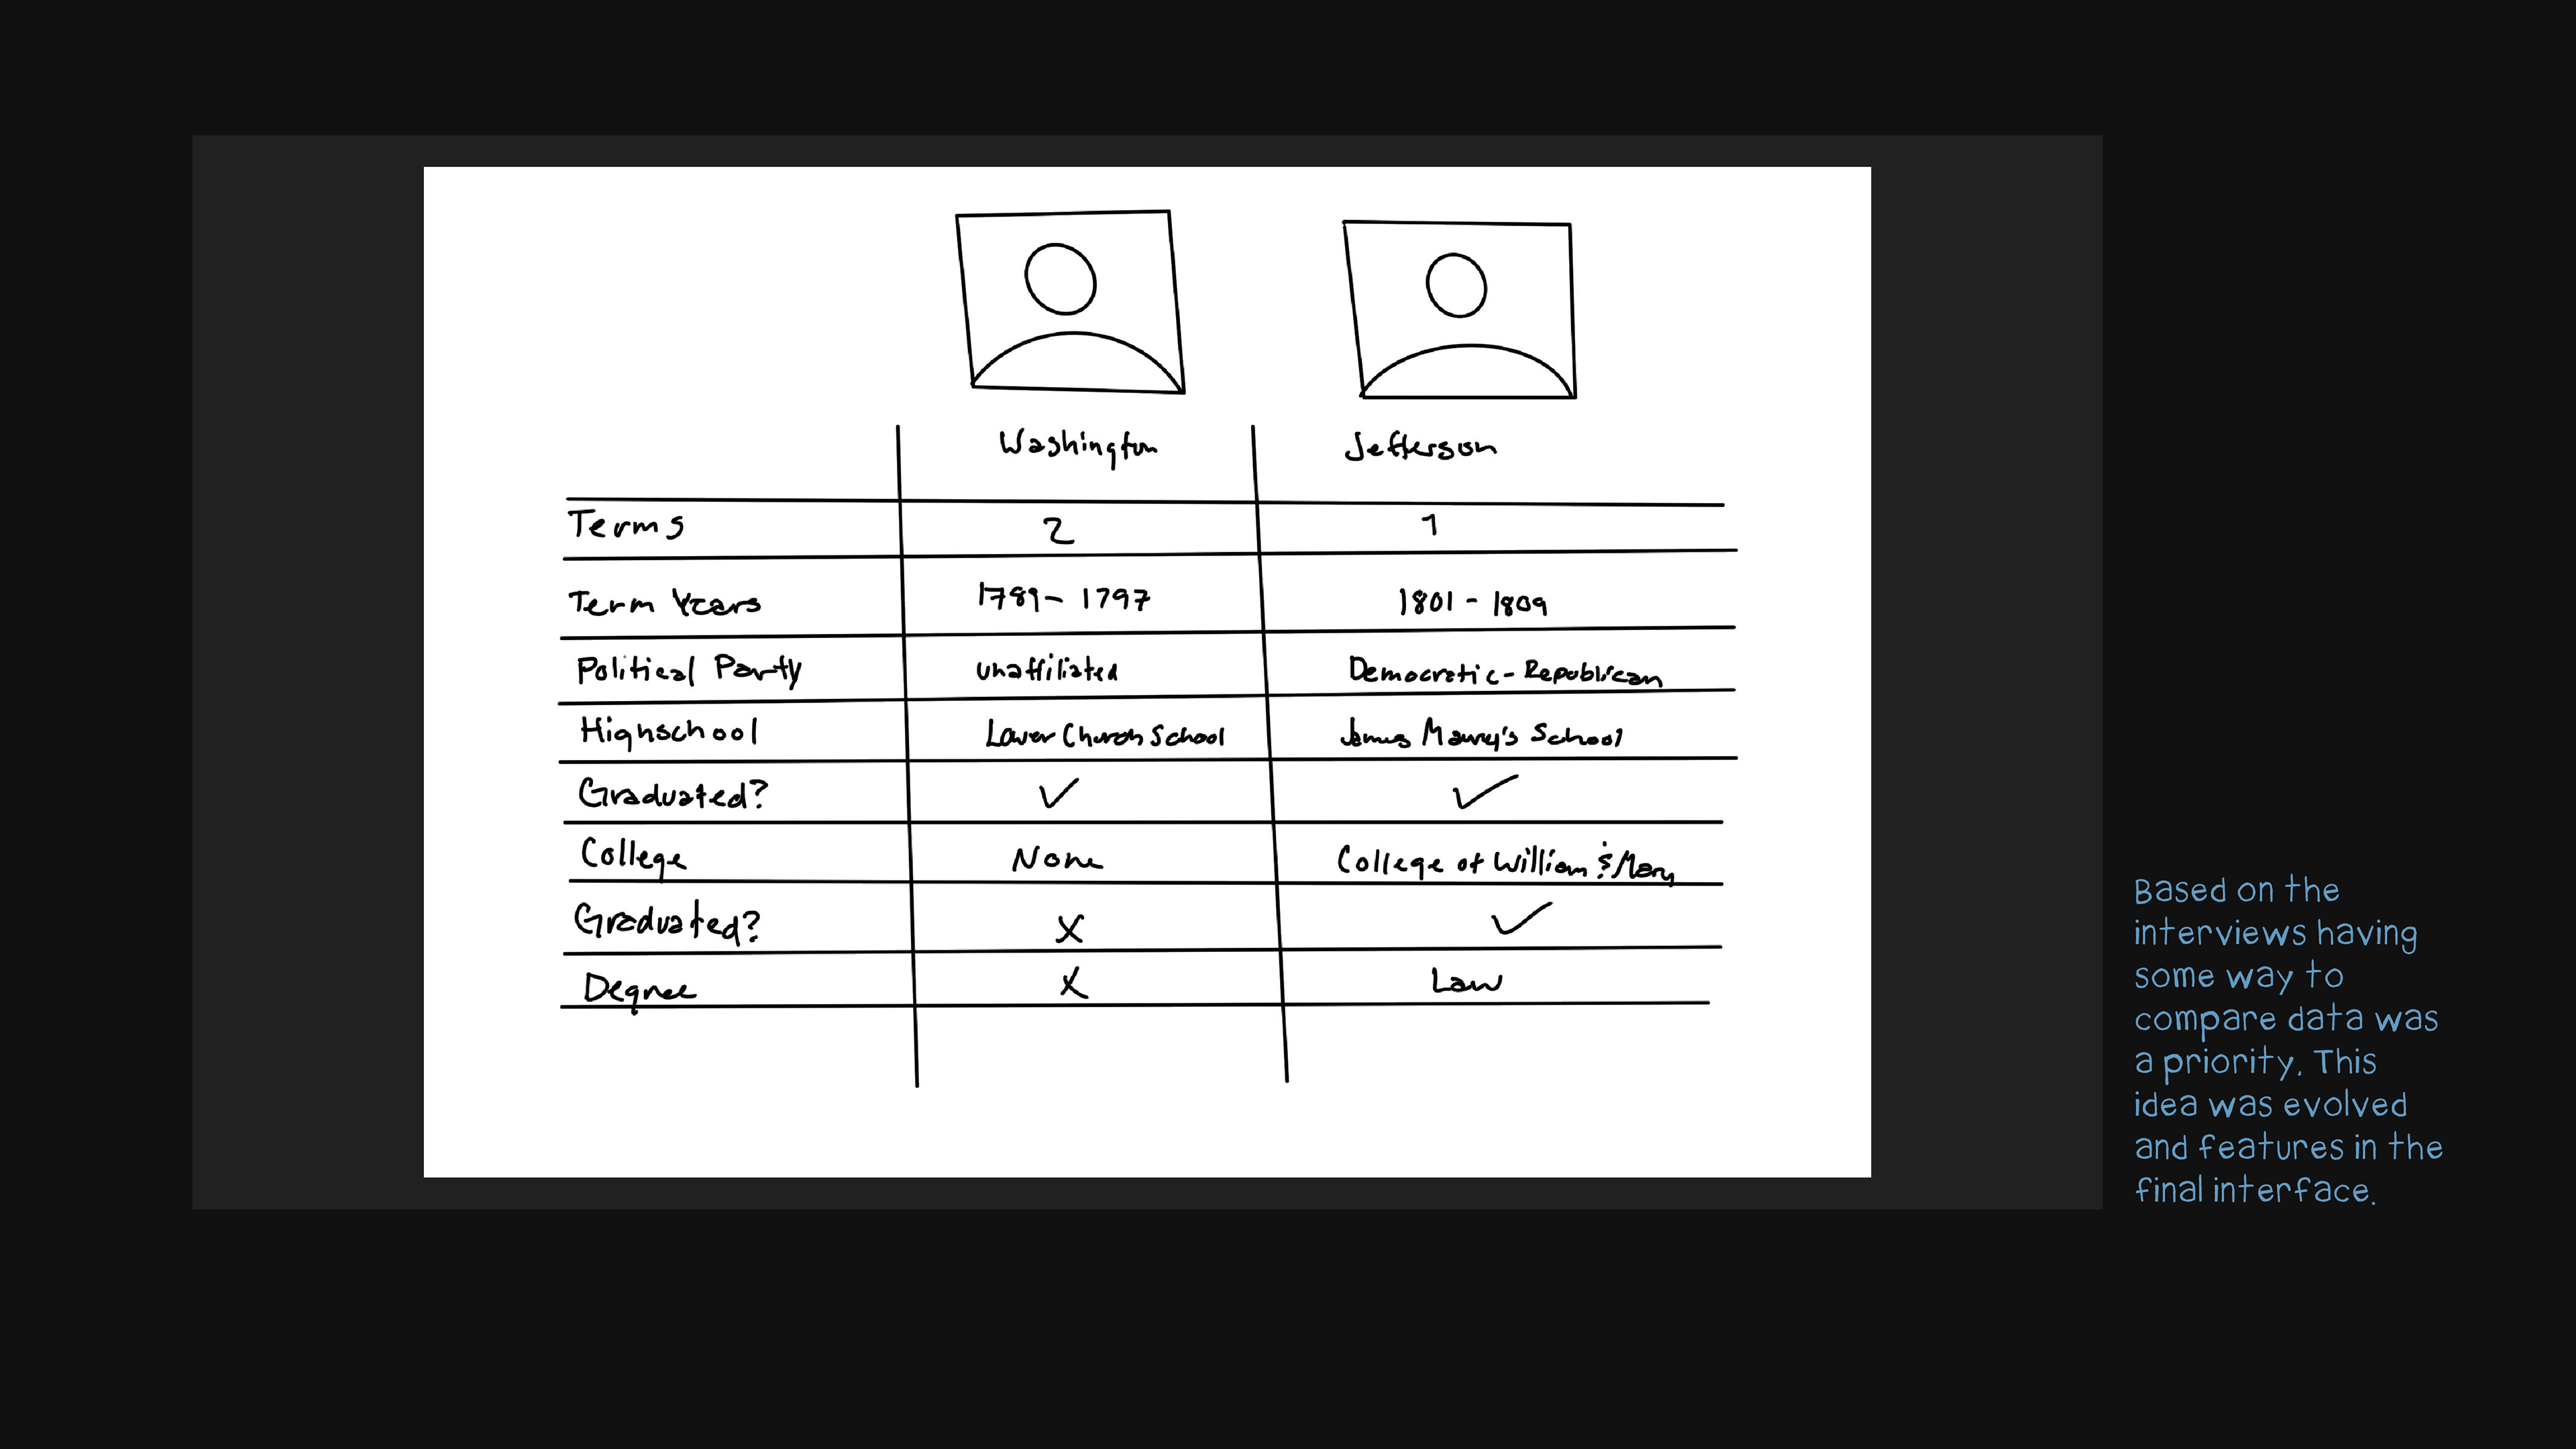 Washington Jefferson
Terms 2 1
Term Years 1789 - 1797 1801 - 1809
Political Party unaffiliated Democratic - Republican
Highschool Lower Church School James Maury's School
Graduated? ✓ ✓
College None College of William & Mary
Graduated? X ✓
Degree X Law
Based on the
interviews having
some way to
compare data was
a priority. This
idea was evolved
and features in the
final interface.